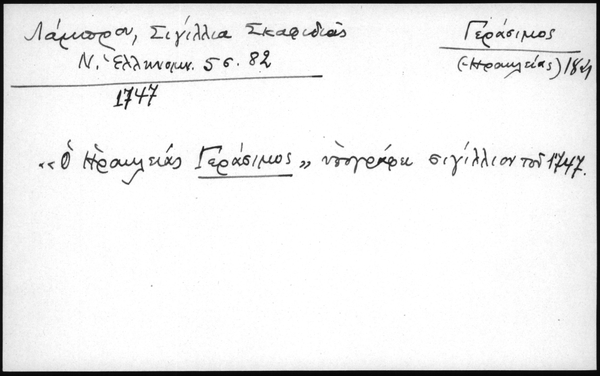 Λάμπρου, Σιγίλλια Σκαφιδιᾶς
Ν. Ἑλληνομν. 5 σ. 82
1747
Γεράσιμος
(Ἡρακλείας)
«Ὁ Ἡρακλείας Γεράσιμος» ὑπογράφει σιγίλλιον τοῦ 1747.